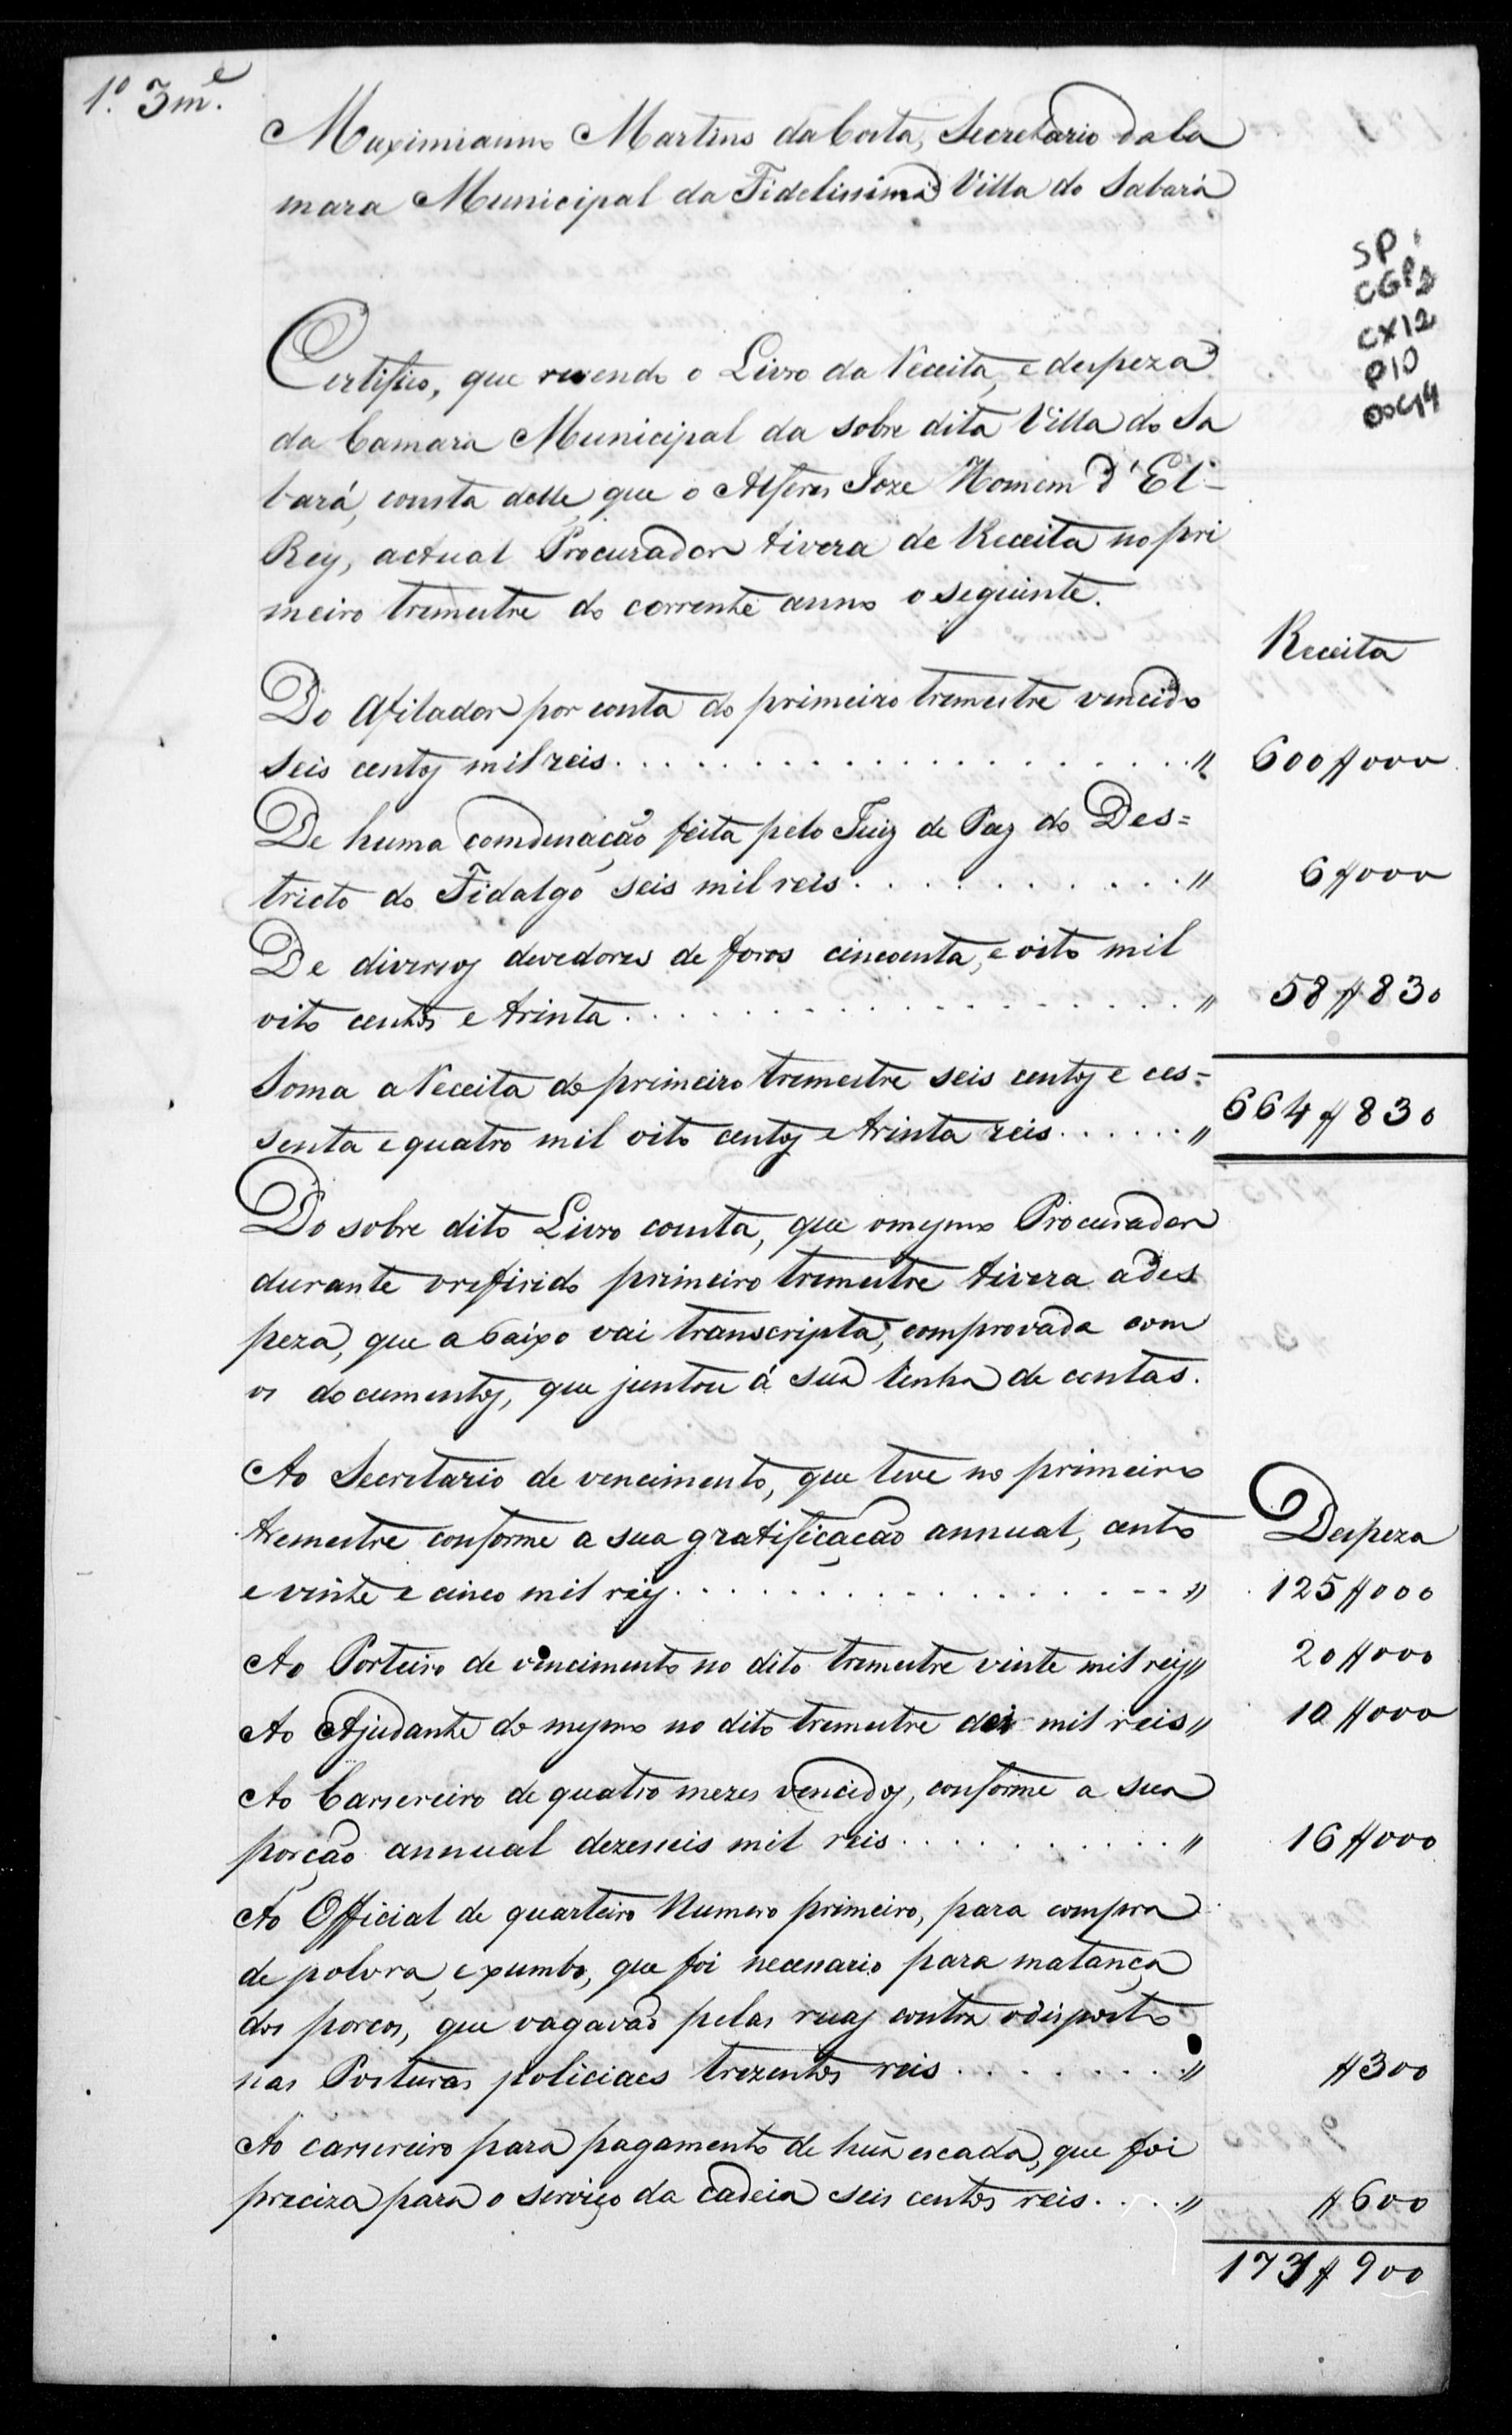 1º. 3mẽ.
Maximianno Martins da Costa, Secretario da Ca
mara Municipal da Fidelissima Villa do Sabará
SP
CGP3
CX12
P10
DOC14
Certifico, que revendo o Livro da Receita, e despeza
da Camara Municipal da sobre dita Villa do Sa
bará, consta delle, que o Alferes Joze Homem d'El-
Rey, actual Procurador tivera de Receita no pri
meiro tremestre do corrente anno o seguinte.
Receita
Do Afilador por conta do primeiro tremestre vencido
seis centos mil reis. . . . . . . . . . . . . . . . . . . " 600$000
De huma comdenação feita pelo Juiz de Paz do Des=
tricto do Fidalgo seis mil reis. . . . . . . . . . . . " 6$000
De diversos devedores de foros cincoenta, e oito mil
oito centos e trinta. . . . . . . . . . . . . . . . . . " 58$830
Soma a Receita do primeiro tremestre seis centos e ces=
senta e quatro mil oito centos e trinta reis. . . . . . " 664$830
Do sobre dito Livro consta, que o mesmo Procurador
durante o refirido primeiro tremestre tivera a des
peza, que a baixo vai transcripta, comprovada com
os documentos, que juntou á sua linha de contas.
Ao Secretario de vencimento, que teve no primeiro
tremestre conforme a sua gratificação annual, cento Despeza
e vinte e cinco mil reis. . . . . . . . . . . . . . . . " 125$000
Ao Porteiro de vencimento no dito tremestre vinte mil reis" 20$000
Ao Ajudante do mesmo no dito tremestre dez mil reis" 10$000
Ao Carsereiro de quatro mezes vencidos, conforme a sua
porção annual dezeseis mil reis. . . . . . . . . . . " 16$000
Ao Official de quarteiro Numero primeiro, para compra
de polvra, e xumbo, que foi necessario para matança
dos porcos, que vagavão pelas ruas contra o disposto
nas Posturas policiaes trezentos reis. . . . . . . . " $300
Ao carsereiro para pagamento de hũa escada, que foi
preciza para o serviço da cadeia seis centos reis. . . . " $600
171$900